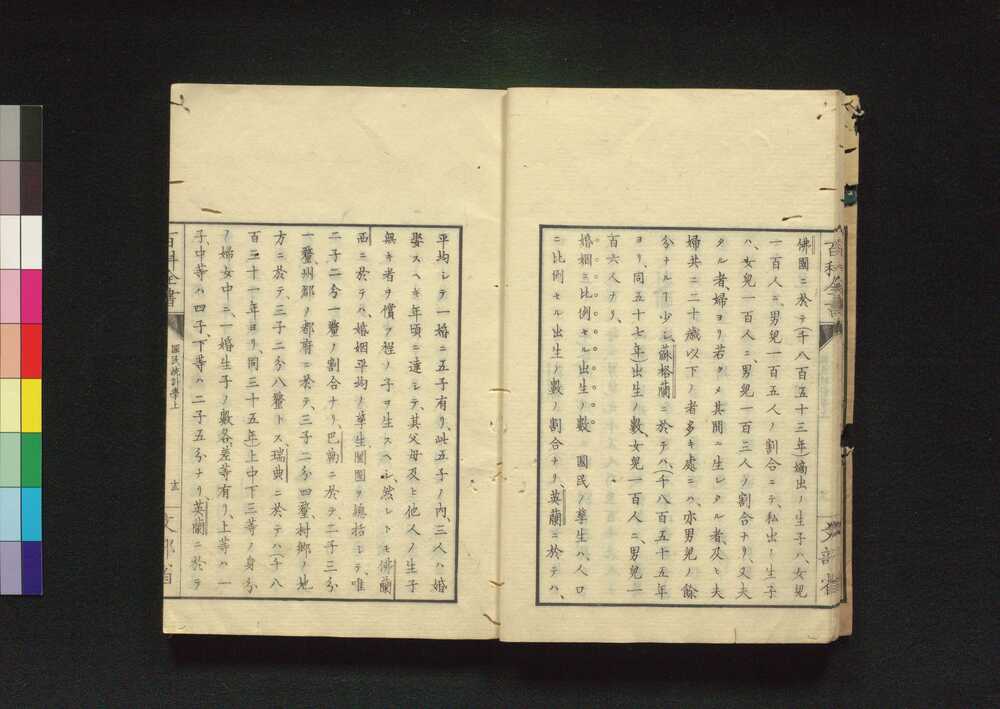 百科全書
文部省
佛國ニ於テ(千八百五十三年)嫡出ノ生子ハ、女兒
一百人ニ、男兒一百五人ノ割合ニテ、私出ノ生子
ハ、女兒一百人ニ、男兒一百三人ノ割合ナリ、又夫
タル者、婦ヨリ若クメ其間ニ生レタル者及ヒ夫
婦共ニ二十歳以下ノ者多キ處ニハ、亦男兒ノ餘
分ナルヿ少シ、蘇格蘭ニ於テハ、(千八百五十五年
ヨリ、同五十七年)出生ノ數、女兒一百人ニ、男兒一
百六人ナリ、
婚姻ニ比例セル出生ノ數 國民ノ孳生ハ、人口
ニ比例セル出生ノ數ノ割合ナリ、英蘭ニ於テハ、
平均シテ一婚ニ五子有リ、此五子ノ内、三人ハ婚
娶スヘキ年頃ニ達シテ、其父母及ヒ他人ノ生子
無キ者ヲ償フ程ノ子ヲ生スヘシ、然レトモ佛蘭
西ニ於テハ、婚姻平均ノ孳生闔國ヲ總括シテ、唯
二子二分一釐ノ割合ナリ、巴勒ニ於テ、二子三分
一釐州郡ノ都府ニ於テ、三子二分四釐、村鄉ノ地
方ニ於テ、三子二分八釐トス、瑞典ニ於テハ(千八
百三十一年ヨリ、同三十五年)上中下三等ノ身分
ノ婦女中ニ一婚生子ノ數各差等有リ、上等ハ一
子、中等ハ四子、下等ハ二子五分ナリ、英蘭ニ於テ
百科全書
國民統計學上
文部省